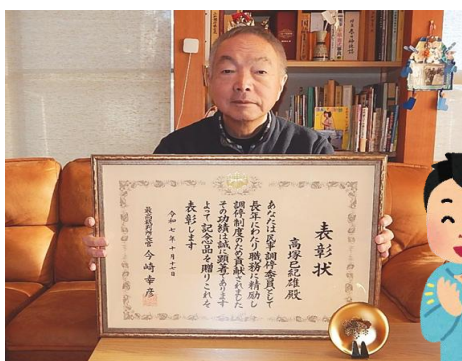 表彰状
高塚巳紀雄殿
あなたは民事調停委員として
長年にわたり職務に精励し
調停制度のため貢献されました
その功績は誠に顕著であります
よって記念品を贈りこれを
表彰します
令和七年十月十七日
最高裁判所長官 今崎幸彦